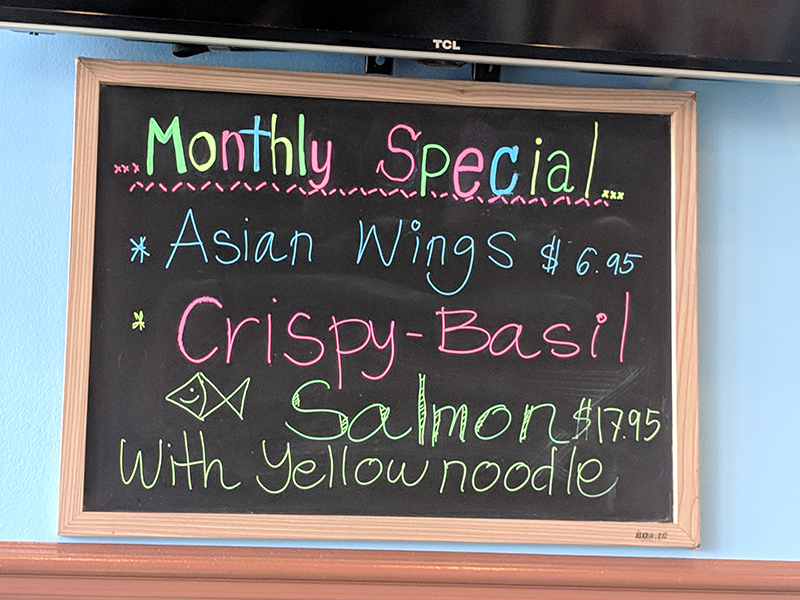 TCL
...Monthly Special...
* Asian Wings $ 6.95
* Crispy-Basil
Salmon $17.95
With Yellow noodle